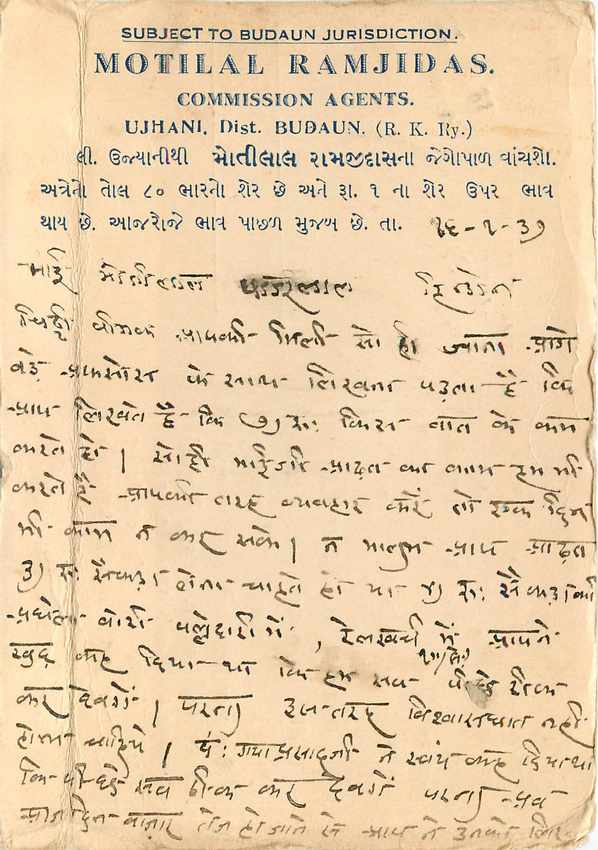 SUBJECT TO BUDAUN JURISDICTION.
MOTILAL RAMJIDAS.
COMMISSION AGENTS.
UJHANI, Dist. BUDAUN. (R. K. Ry.)
લી. ઉજ્યાનીથી મોતીલાલ રામજીદાસના જેગોપાળ વાંચશો.
અત્રેનો તોલ ૮૦ ભારનો શેર છે અને રૂા. ૧ ના શેર ઉપર ભાવ
થાય છે. આજરોજે ભાવ પાછળ મુજબ છે. તા. १६-१-३७
भाई
चिट्ठी आपकी मिली सो ज्ञात आगे
बड़े अफसोस के साथ लिखना पड़ता है कि
आप लिखते है कि (७) रु: किस बात के कम
करते हो । सोही भाईजी आढ़त का काम हम भी
करते है आपकी तरह व्यवहार करें तो एक दिन
भी काम न कर सके । न मालुम आप आढ़त
३) रु: सैकड़ा लेना चाहते हो या ४) रु: सैकड़ा की
बोरी पल्लेदारी में, रेलखर्च में आपने
खुद कह दिया था कि हम सब पीछे ठीक
कर देवेगें । परन्तु इस तरह विश्वासघात नही
होना चाहिये । पं: गयाप्रसादजी ने स्वंय कह दिया था
कि सब ठीक कर देवेगें परन्तु अब
बाजार तेज हो जाने से आप ने उनके लिए